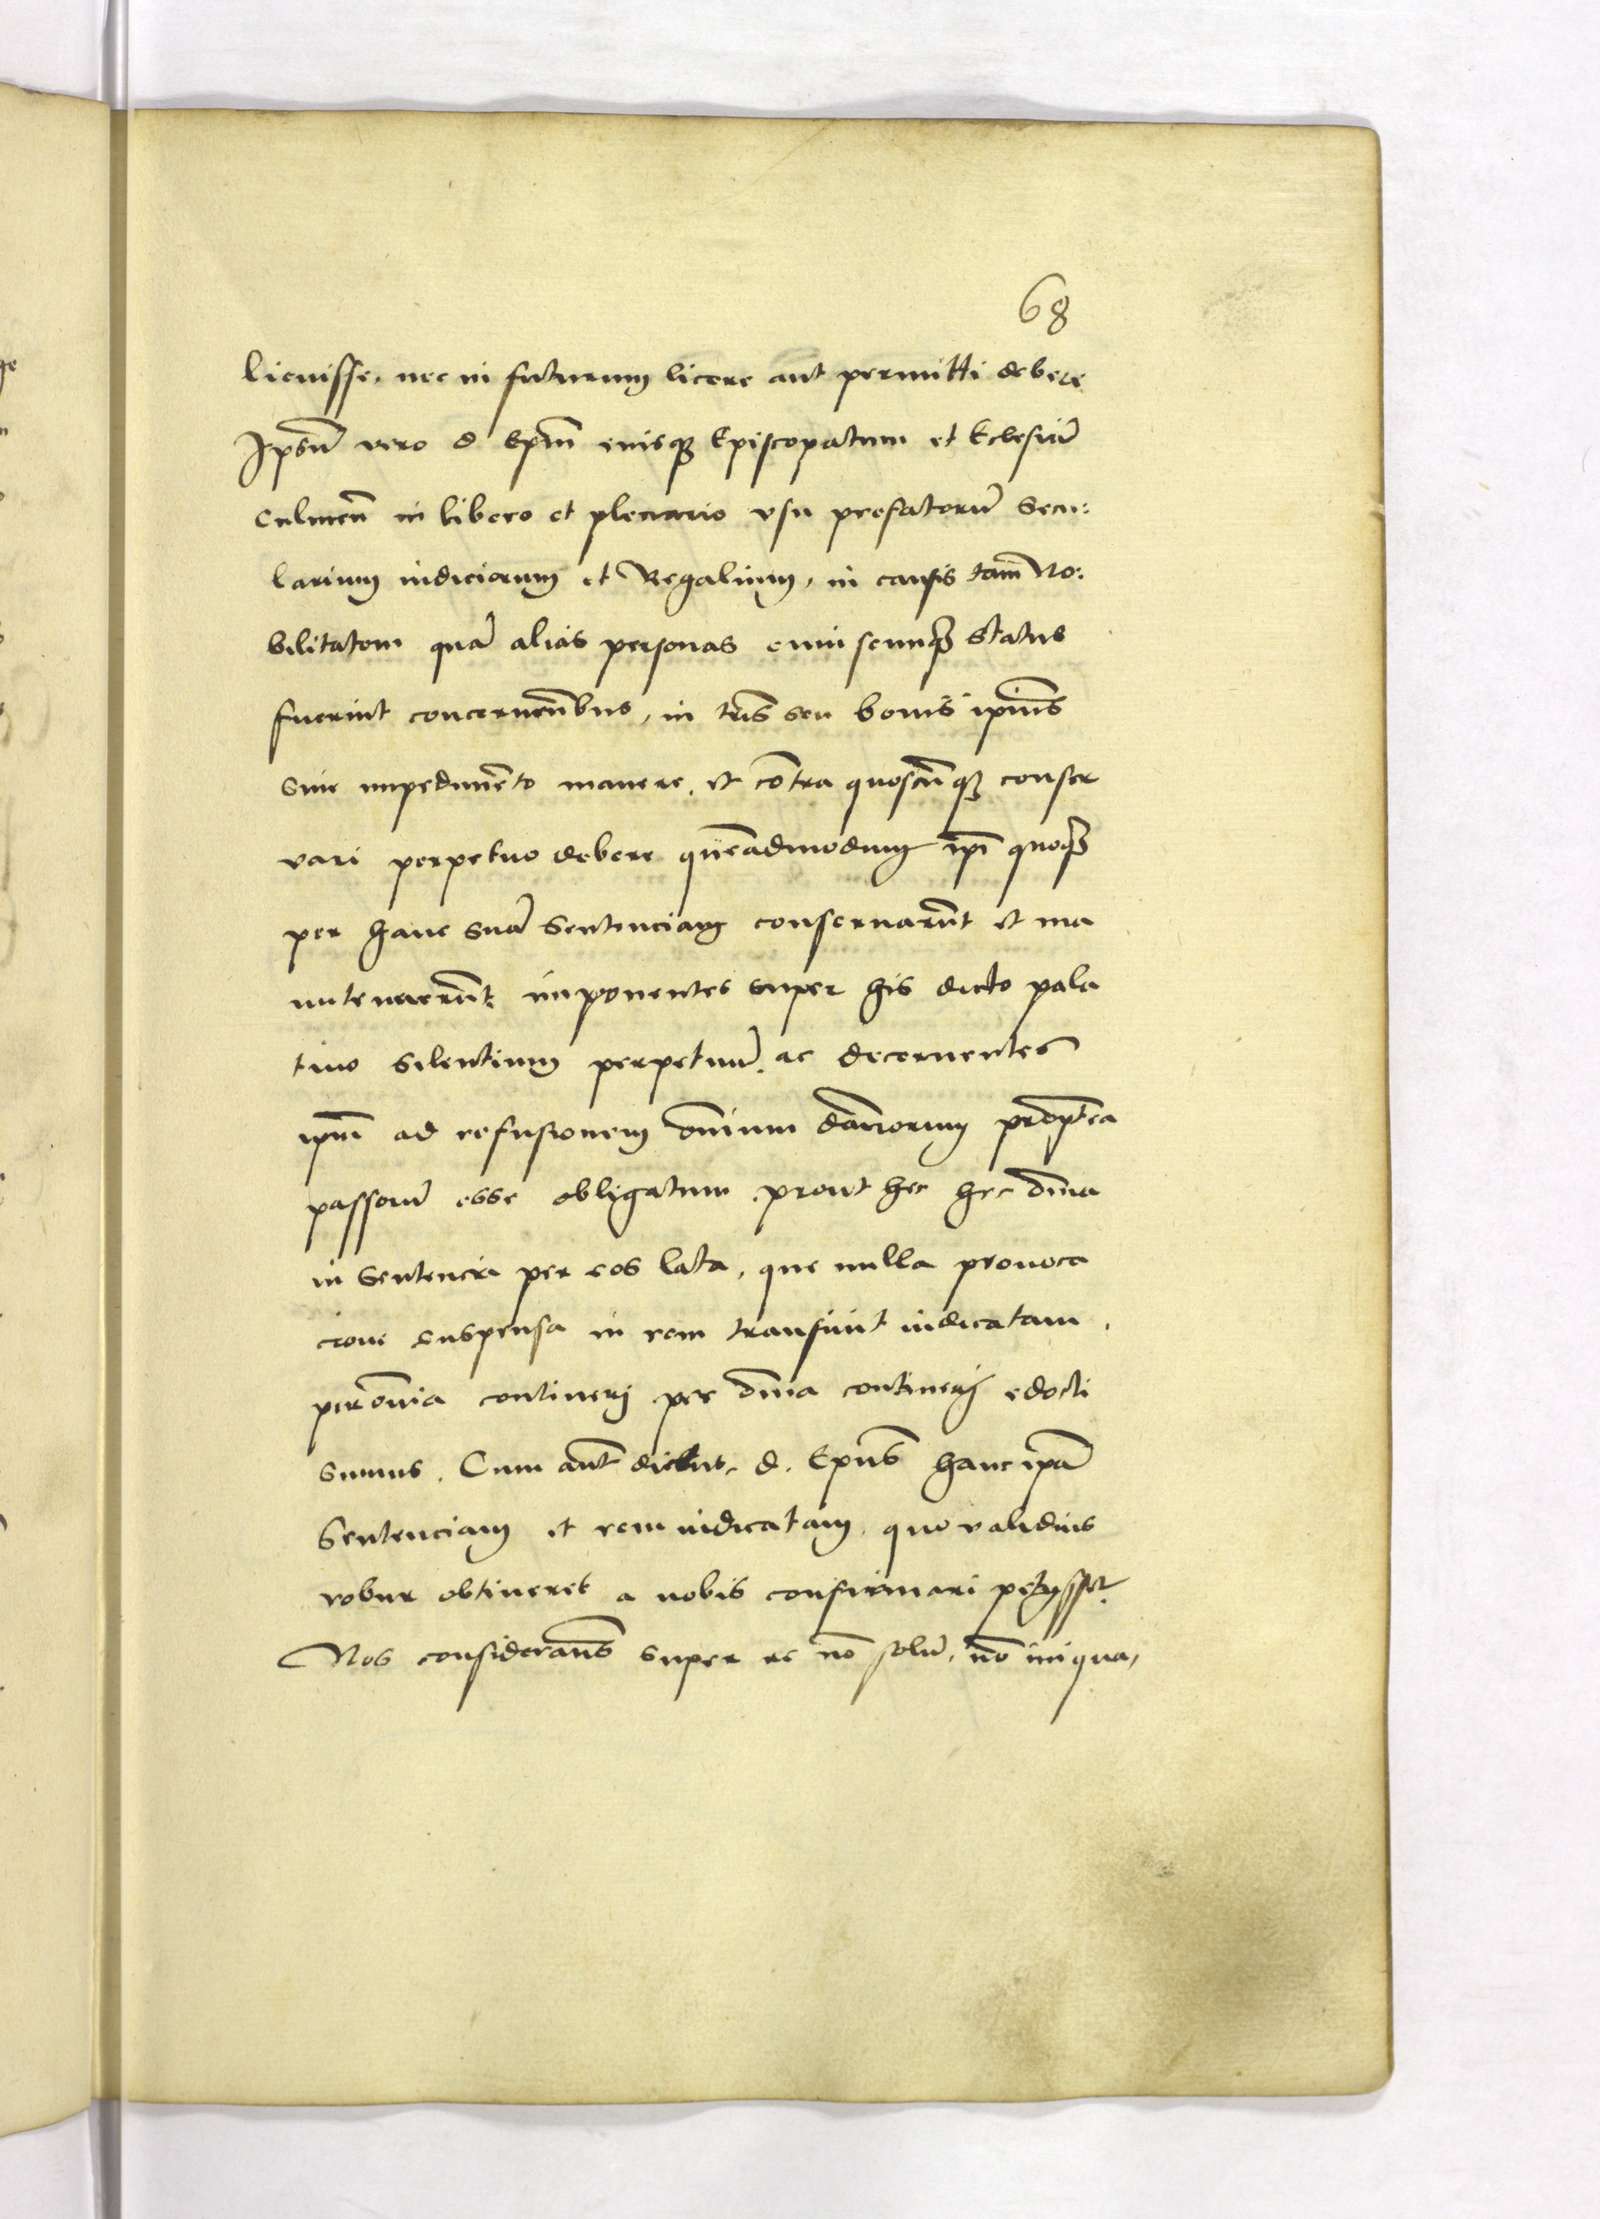 68
licuisse, nec in futurum licere aut permitti debere
Ipsū vero d Epm̄ eiusqȝ Episcopatum et Eclesiā
Culmeñ in libero et plenario vsu prefatorū Secu:
larium iudiciorum et Regalium, in causis tam̄ No:
bilitatem quā alias personas cuiuscunqȝ Status
fuerint concerneñbus, in tr̄is seu bonis ip̄ius
Sine impedimēto manere, et cōtra quoscūqȝ conser
vari perpetuo debere quēadmodum ip̄i quoqȝ
per hanc suā Sentenciam conseruarūt et ma
nutenuerūt imponentes super his dicto pala
tino Silentium perpetuū, ac decernentes
ip̄m ad refusionem om̄ium dānorum propt̄ea
passorū esse obligatum prout hec hec om̄ia
in Sentencia per eos lata, que nulla prouoca
cione suspensa in rem transiuit iudicatam,
per om̄ia contineri per om̄ia contineri edocti
sumus. Cum aūt dictus, d. Ep̄us hanc ip̄ā
Sentenciam et rem iudicatam, quo validius
robur obtineret a nobis confirmari petijsset
Nos considerāns super re nō solū, nō iniqua,